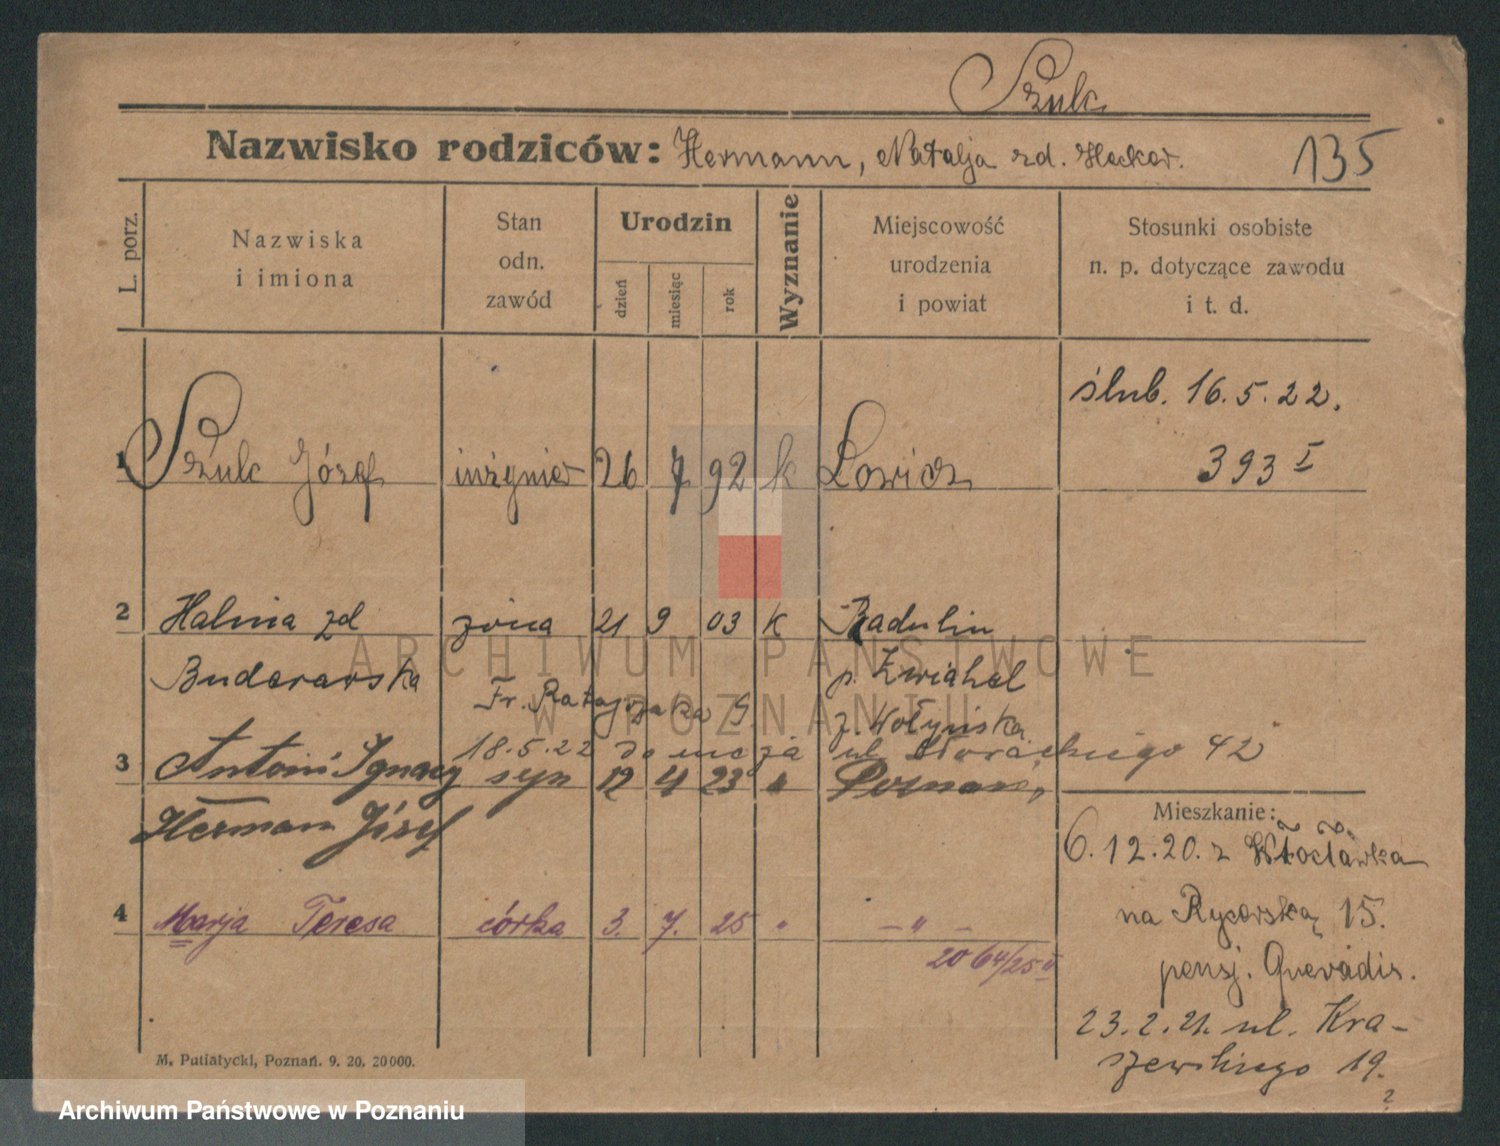 Szulc
Nazwisko rodziców: Hermann, Natalja zd. Hecker.
135
L. porz.
Nazwiska
i imiona
Stan
odn.
zawód
Urodzin
dzień
miesiąc
rok
Wyznanie
Miejscowość
urodzenia
i powiat
Stosunki osobiste
n. p. dotyczące zawodu
i t. d.
ślub. 16.5.22.
393 I
1 Szulc Józef inżynier 26 7 92 k Łowicz
2 Halina zd żona 21 9 03 k Radulin
p. Zwiahel
Fr. Ratajczaka 9
z. Wołyńska
18.5.22 do męża ul 42
3 Antoni Ignacy syn 12 4 23 " Poznań,
Herman Józef
Mieszkanie:
6.12.20. z Włocławka
na Rycerską 15.
pensj. Quevadis.
23.2.21. ul. Kra-
szewskiego 19.
?
4 Marja Teresa córka 3. 7. 25 " - " -
2064/25 II
M. Putiatycki, Poznań. 9. 20. 20000.
ARCHIWUM PAŃSTWOWE
W POZNANIU
Archiwum Państwowe w Poznaniu